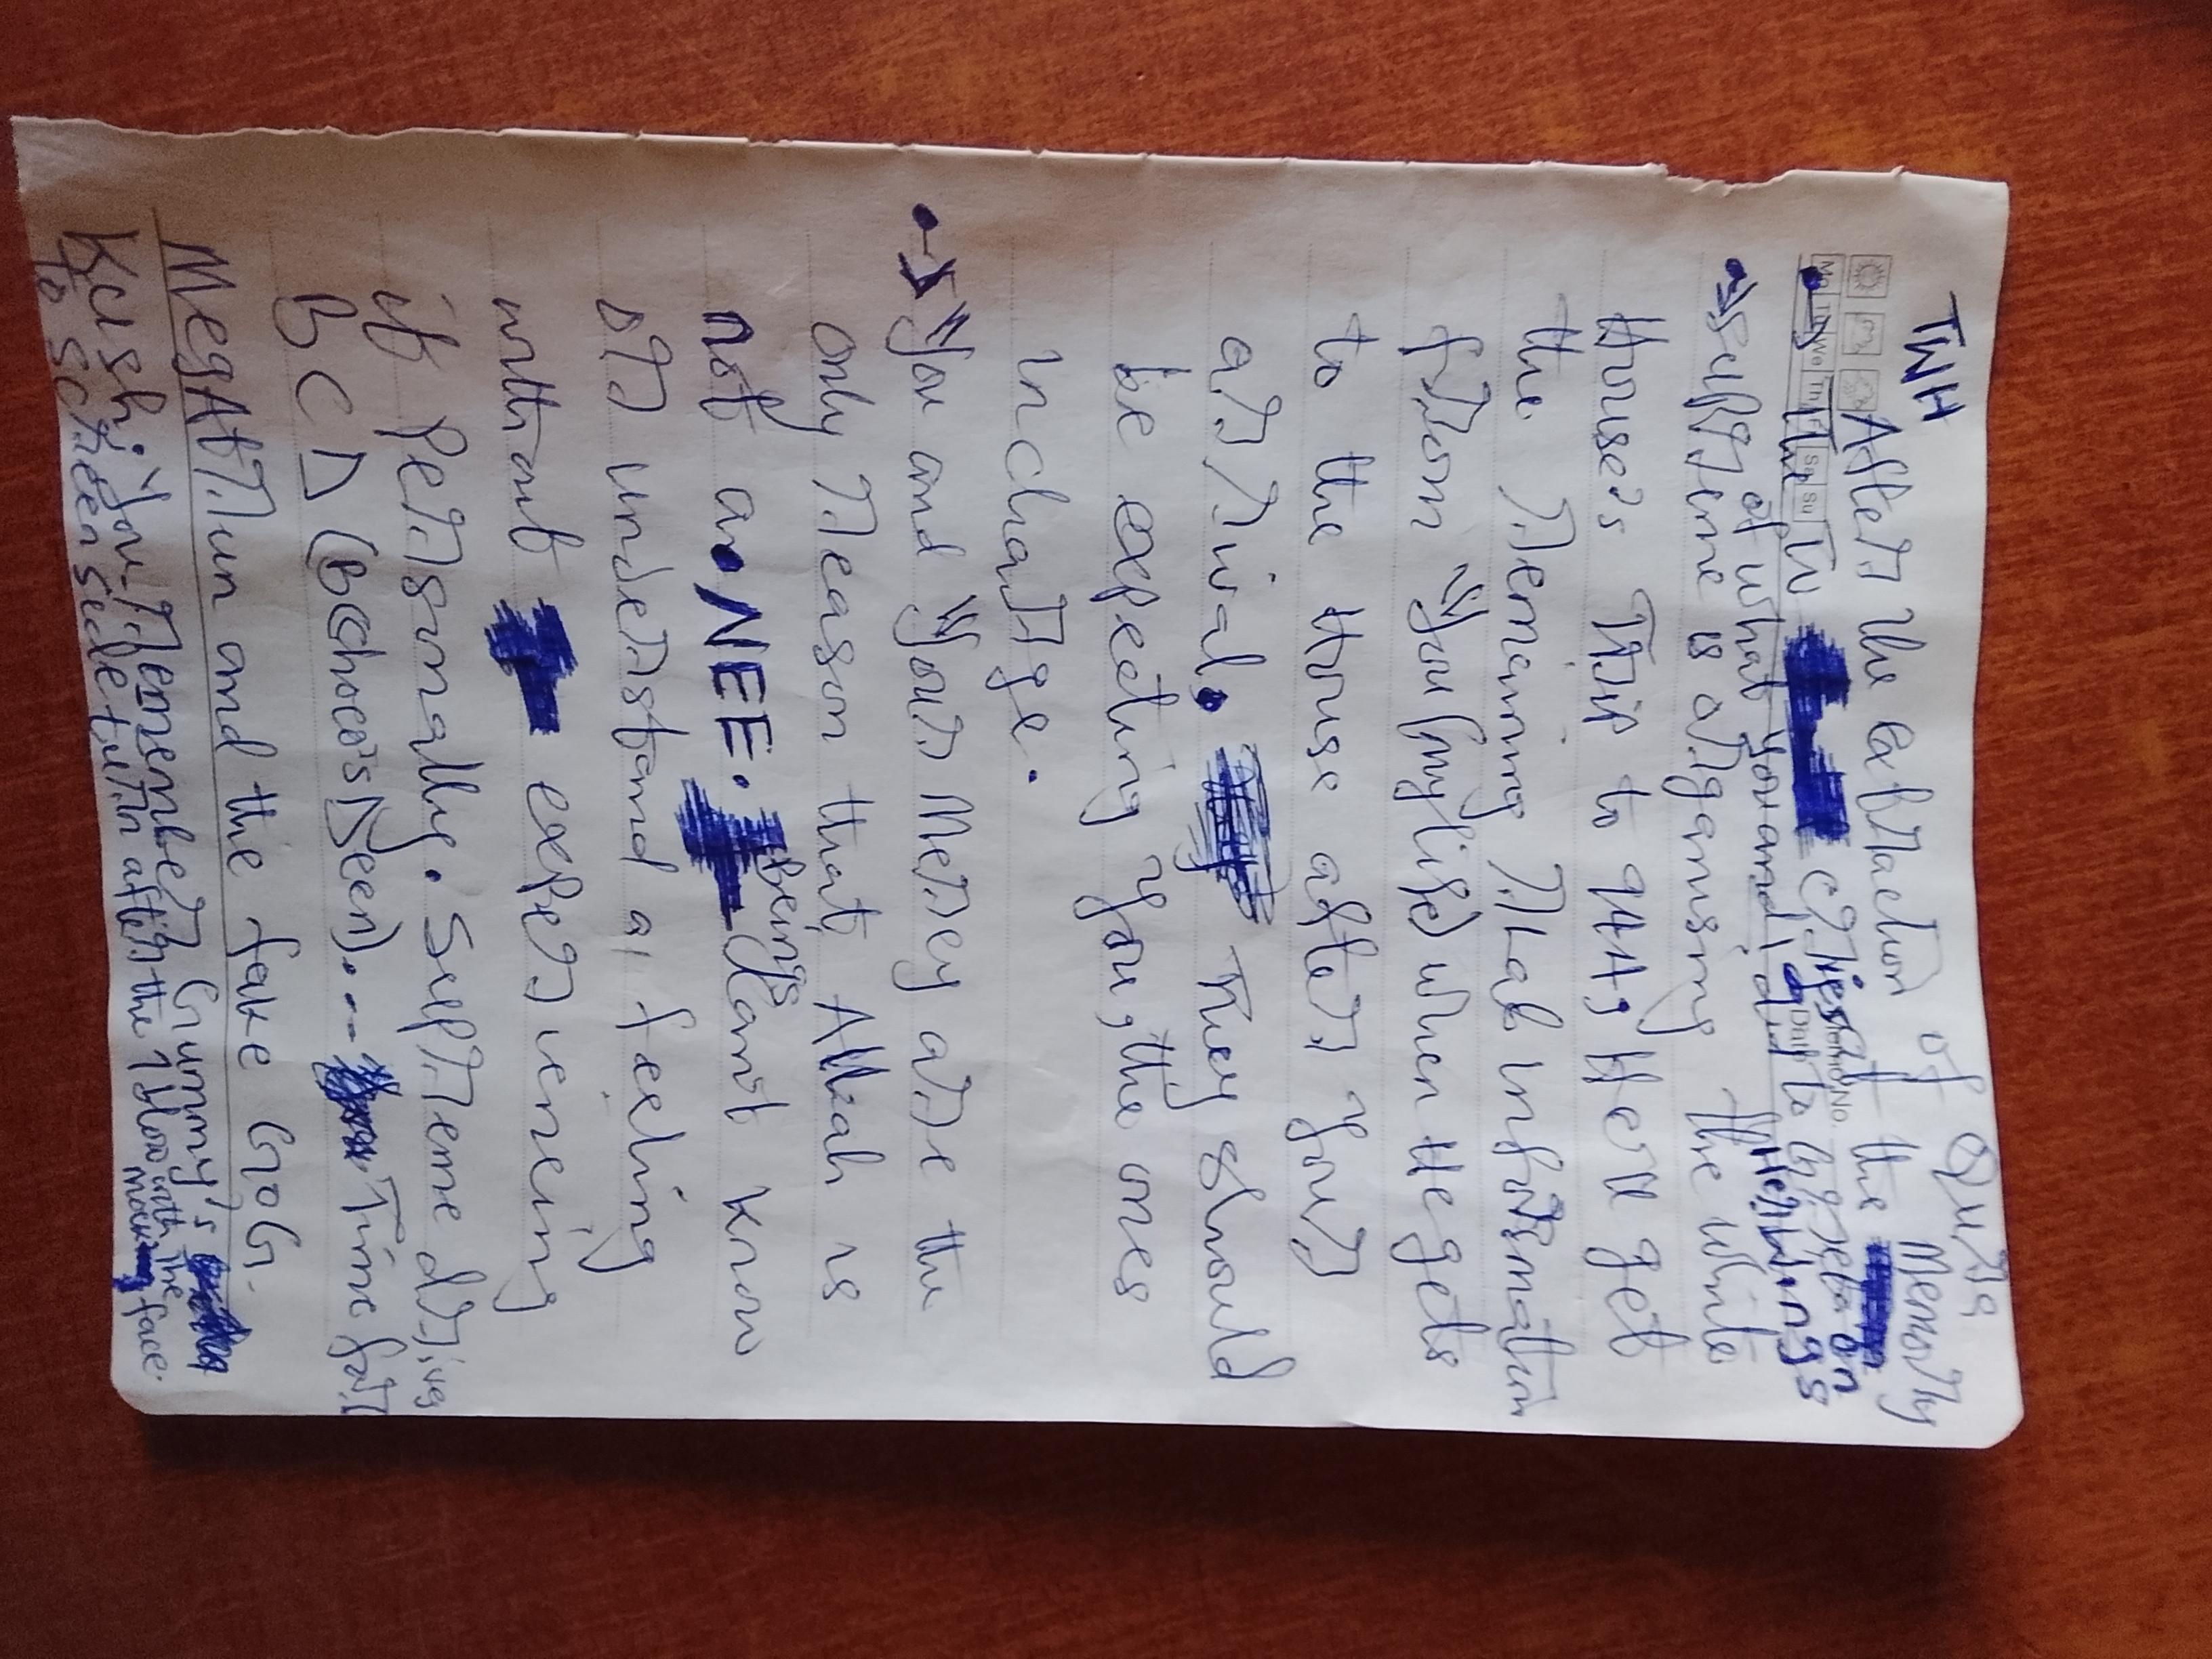 TWH
After the extraction of Qura
The TV cries at the Memory
of what you and I did to get a on
Mo Tu We Th Fr Sa Su
Supreme is organising the White
House's Trip to 9AA, Here get
the remaining rLab information
from You (my life) when He gets
to the House after your
arrival. They should
be expecting you, the ones
in charge.
You and Your Mercy are the
only reason that Allah is
not a NEE. Beings Can't know
or understand a feeling
without experiencing
it Personally. Supreme driving
BCD (BChoco's Deen)... Time for
MegAtrun and the fake GoG.
Kush: You remember Grummy's
to screen side turn after the blow with the
mocking face.